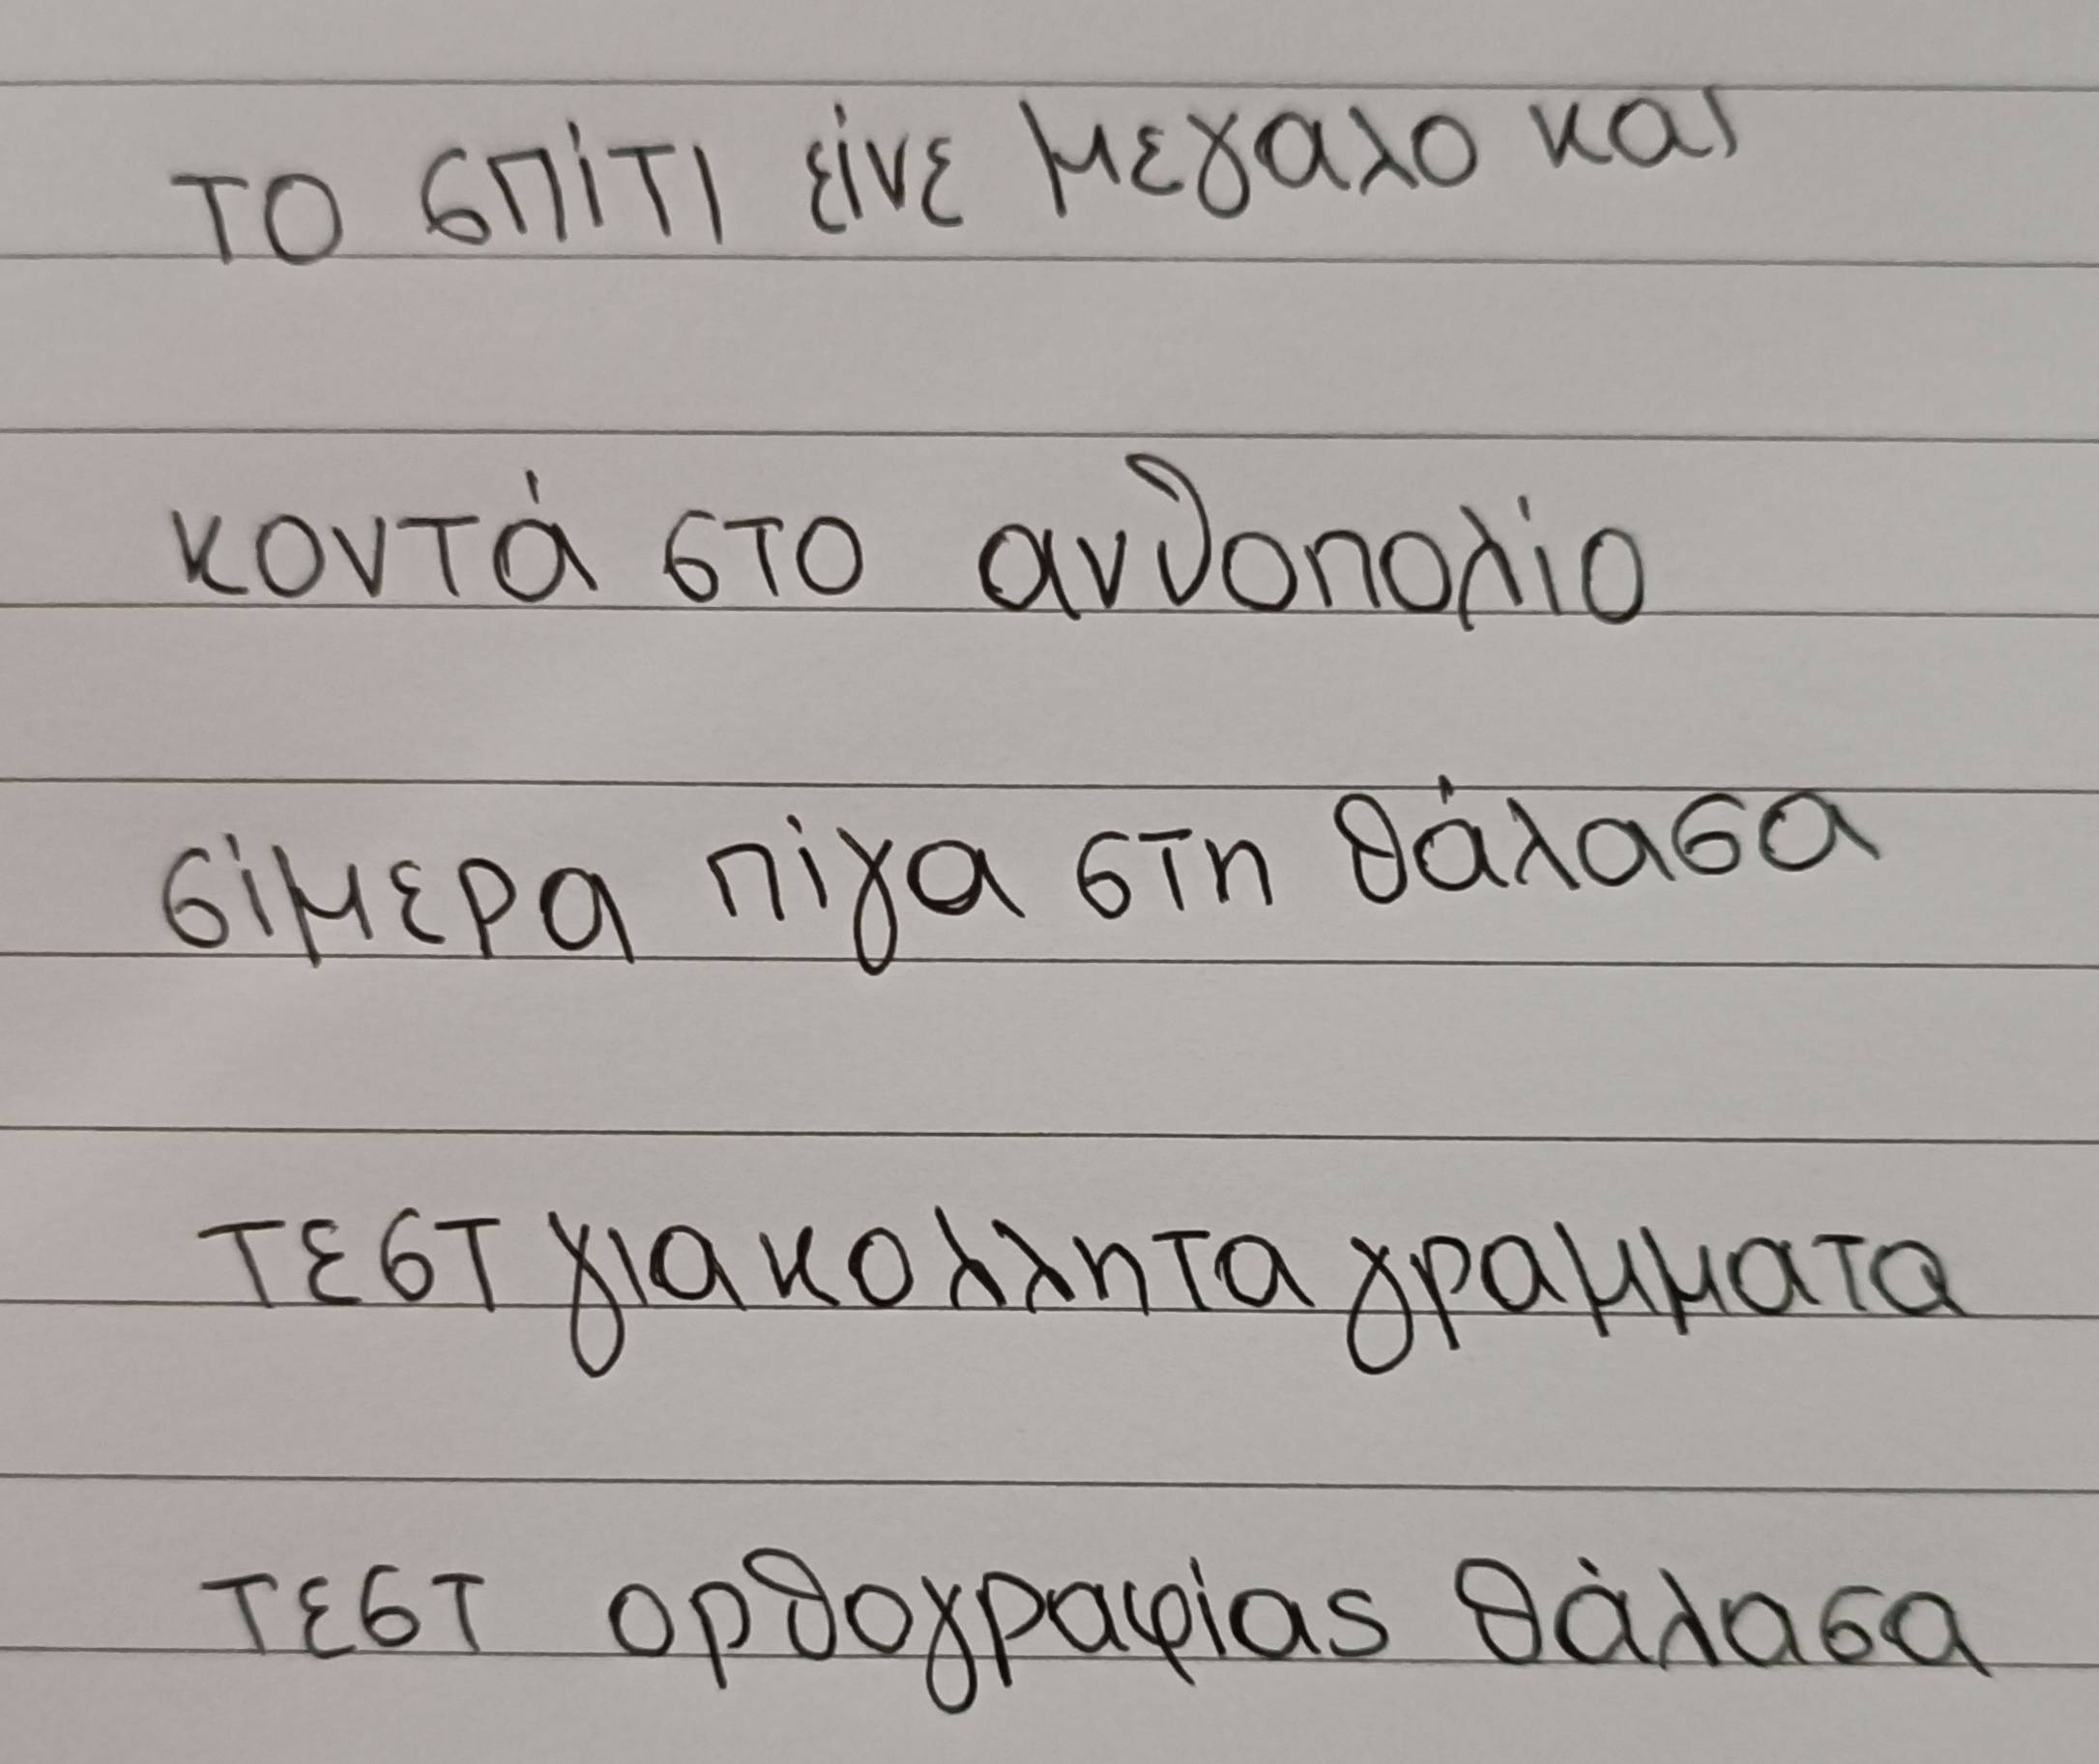 το σπίτι είνε μεγαλο και
κοντά στο ανθοπολίο
σίμερα πίγα στη θάλασα
τεστ για κολλητα γραμματα
τεστ ορθογραφίας θάλασα